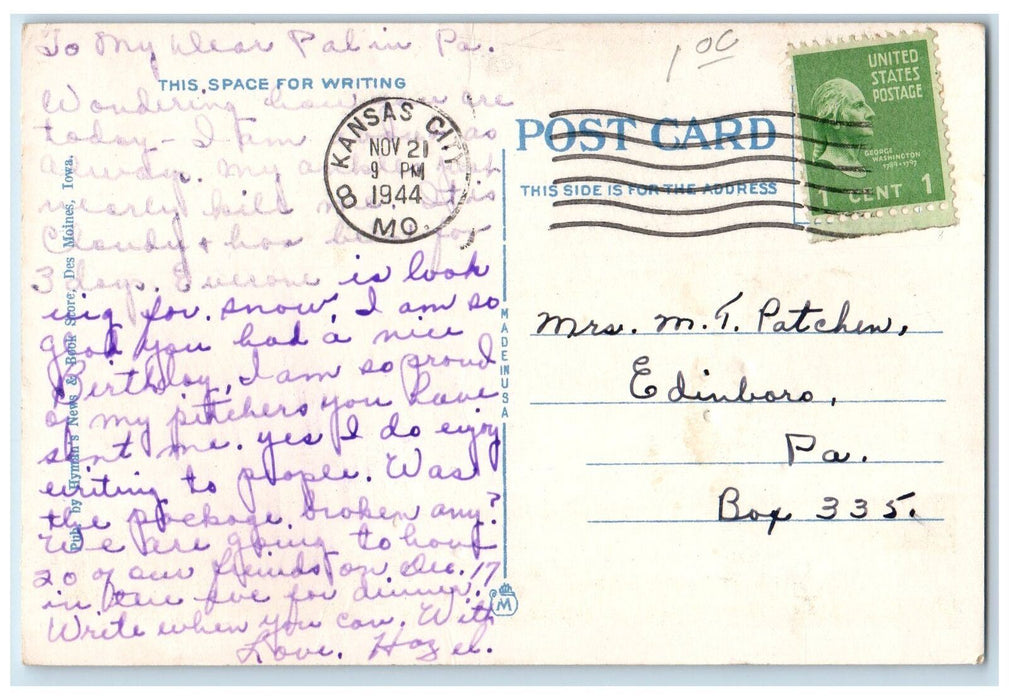 To My Dear Pal in Pa.
THIS SPACE FOR WRITING
Wondering how you are
today - I am
away. My
nearly kill me. It is
Cloudy + has been for
3 days. Everone is look
ing for snow. I am so
glad you had a nice
Birthday, I am so proud
of my pitchers you have
sent me. yes I do enjoy
writing to people. Was
the package broken any?
We are going to have
20 of our friends on Dec. 17
in the eve for dinner.
Write when you can. With
Love. Hazel.
Pub. by Hyman's News & Book Store, Des Moines, Iowa.
KANSAS CITY
NOV 21
9 PM
1944
MO.
8
MADE IN USA
M
1 00
POST CARD
THIS SIDE IS FOR THE ADDRESS
UNITED
STATES
POSTAGE
GEORGE
WASHINGTON
1789-1797
1 CENT 1
Mrs. M. T. Patchen,
Edinboro,
Pa.
Box 335.